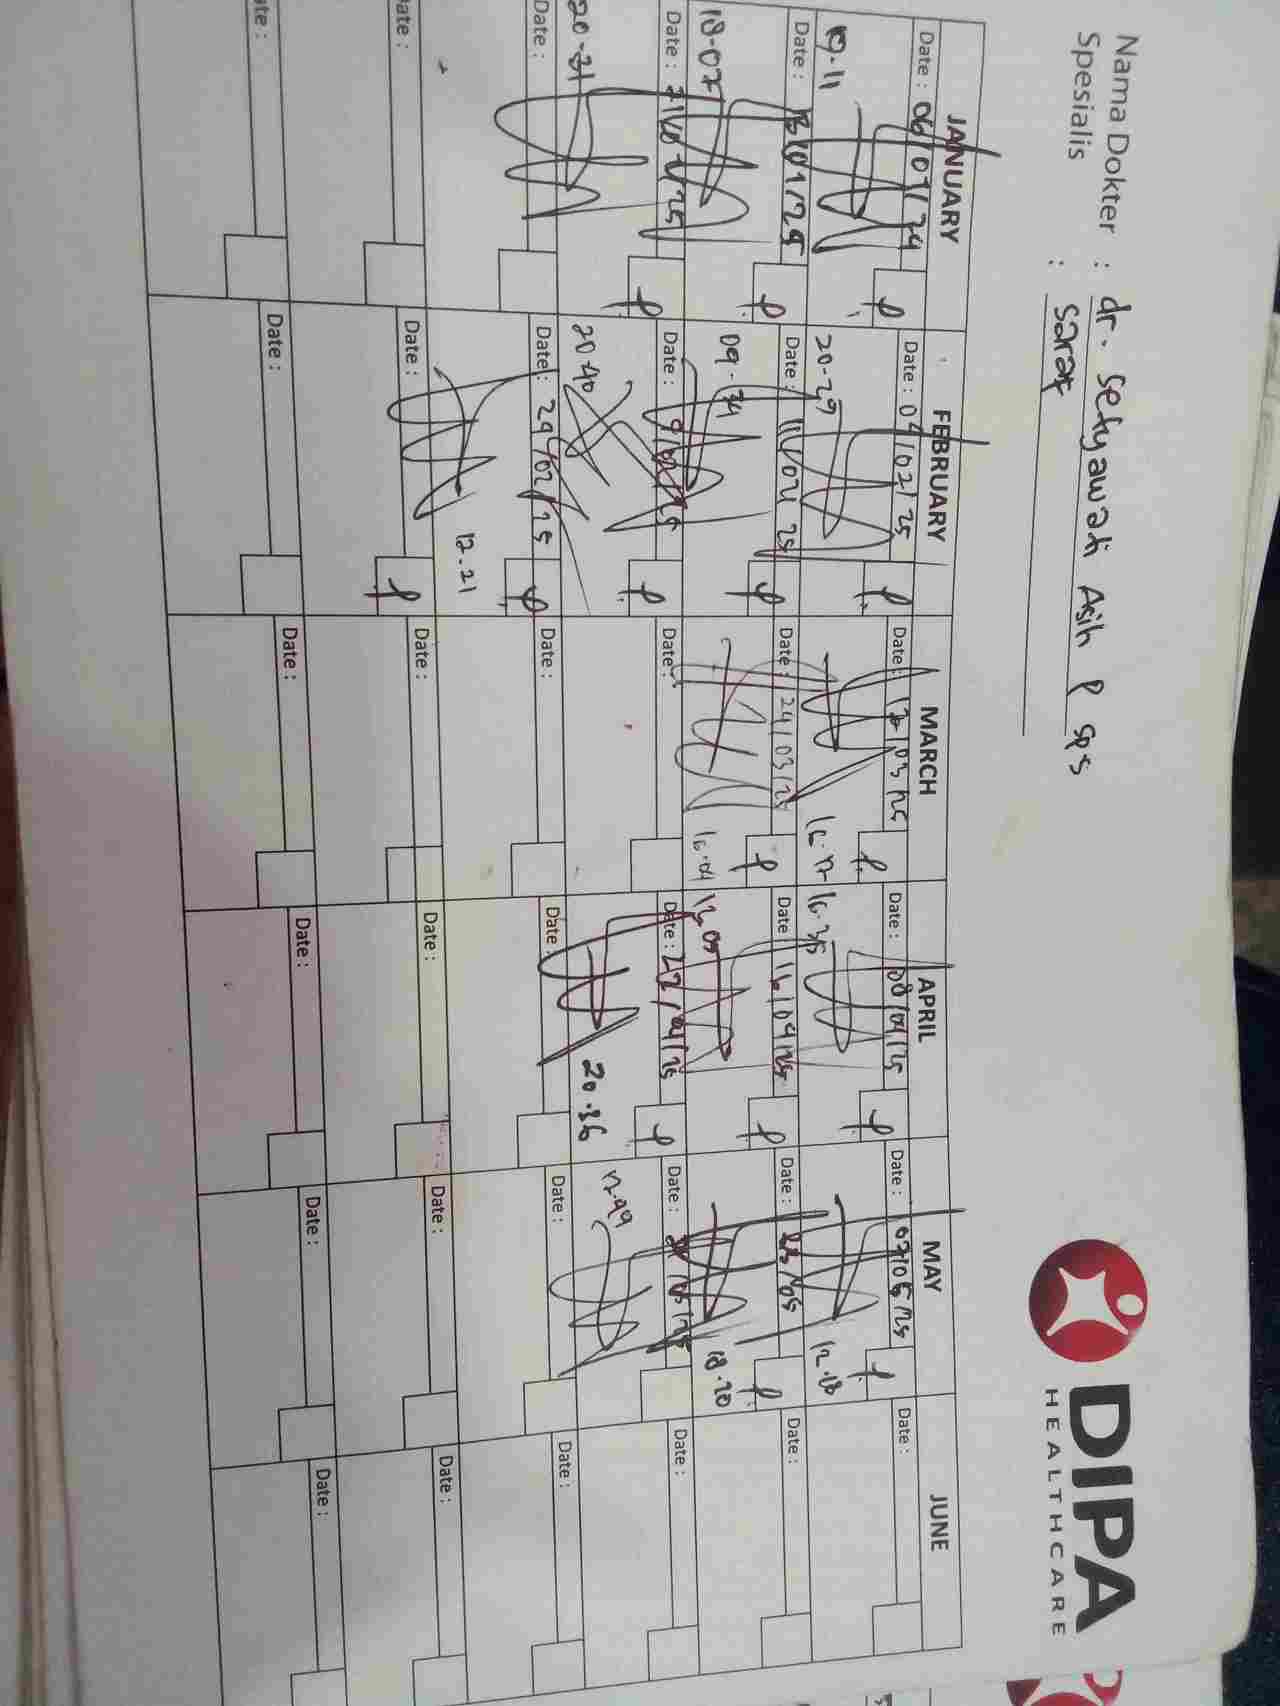 DIPA
HEALTHCARE
Nama Dokter : dr. Setyawati Asih P SpS
Spesialis : Saraf
JANUARY FEBRUARY MARCH APRIL MAY JUNE
Date : 06/01/24 Date : 04/02/25 Date : 17/03/25 Date : 08/04/25 Date : 07/05/25 Date :
20-29 16.17 16.35 12.18
Date : 13/01/25 Date : 11/02/25 Date : 24/03/25 Date : 16/04/25 Date : Date :
18-07 16.04 18.20
Date : 21/01/25 Date : Date : Date : 22/04/25 Date : Date :
20-31 20.40 20.36 17.49
Date : Date : 24/02/25 Date : Date : Date : Date :
12.21
Date : Date : Date : Date : Date : Date :
Date : Date : Date : Date : Date : Date :